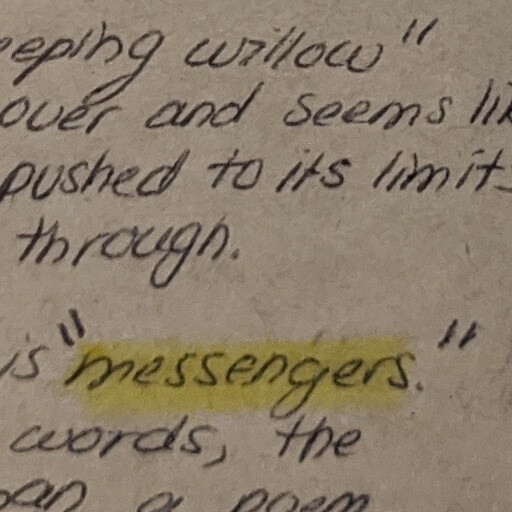 eeping willow"
over and seems lik
pushed to its limits
through.
is "messengers."
words, the
an a poem